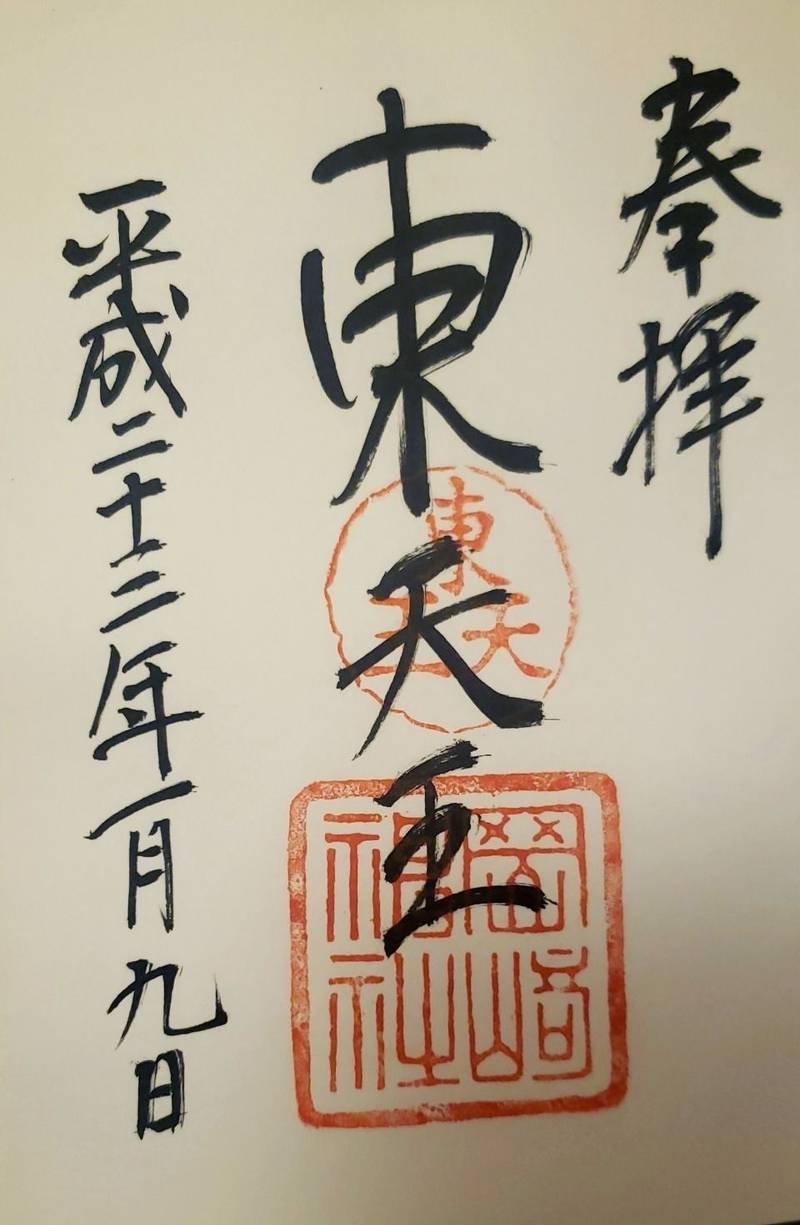 奉拝
東天王
東
天王
岡崎
神社
平成二十二年一月九日